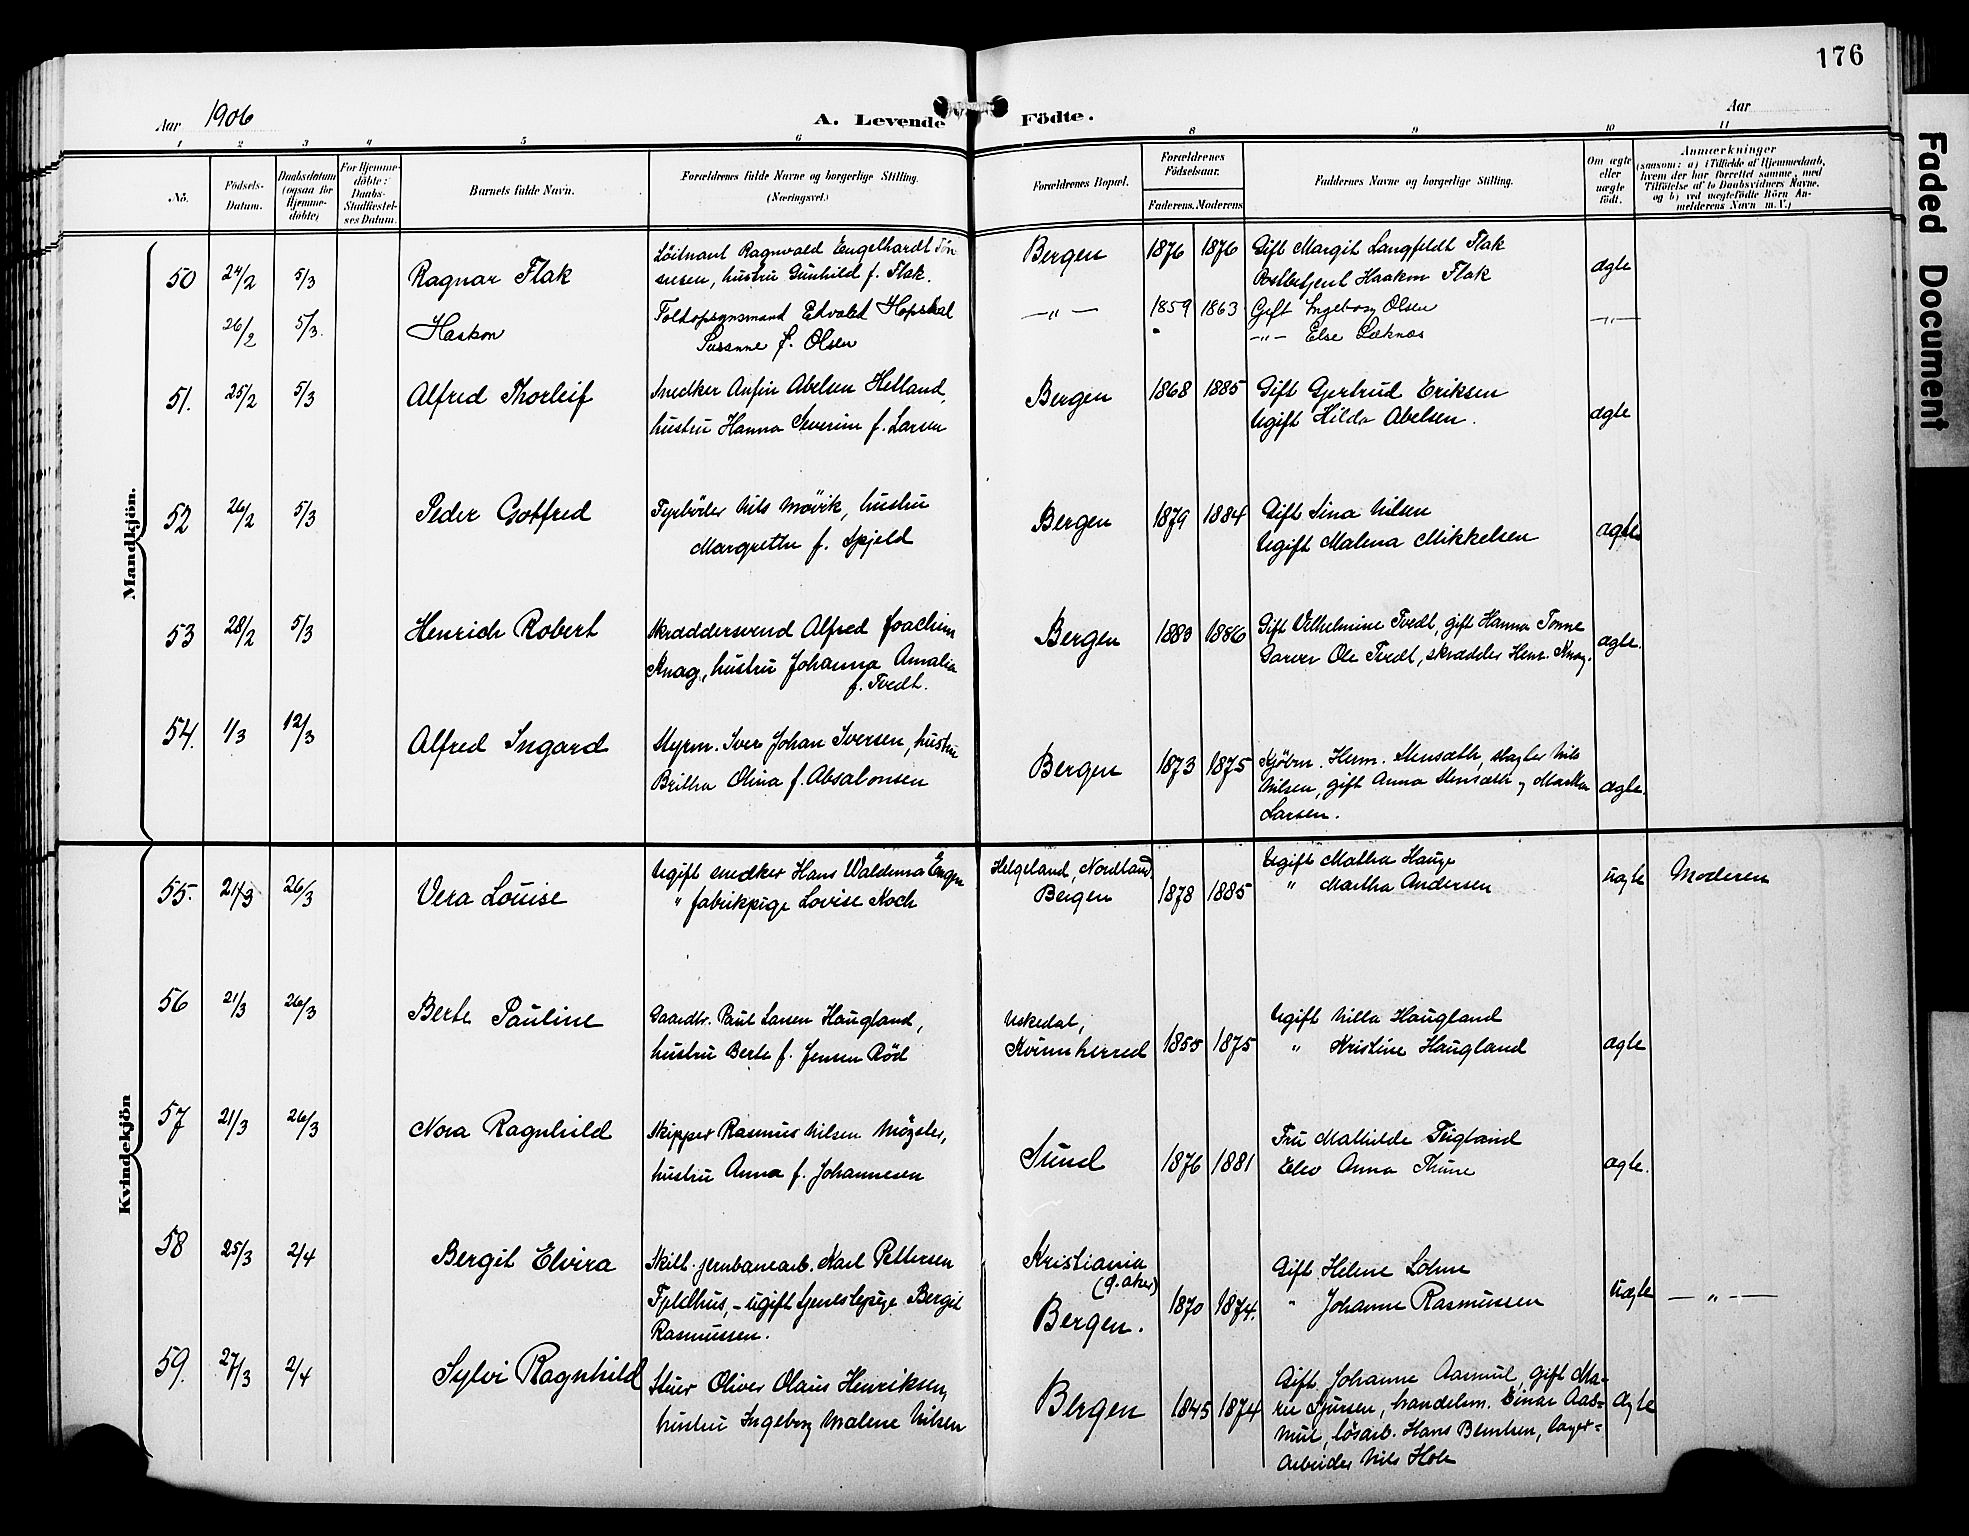 176
Faded Document
Aar 1906
A. Levende Födte.
Aar
1 2 3 4 5 6 8 9 10 11
No.
Födsels-Datum.
Daabsdatum (ogsaa for Hjemme-döbte)
For Hjemme-döbte: Daabs-Stadfæstel-ses Datum.
Barnets fulde Navn.
Forældrenes fulde Navne og borgerlige Stilling.
(Næringsvei.)
Forældrenes Bopæl.
Forældrenes Födselsaar.
Faderens. Moderens.
Faddernes Navne og borgerlige Stilling.
Om ægte eller uægte födt.
Anmærkninger
(saasom: a) i Tilfælde af Hjemmedaab,
hvem der har forrettet samme, med
Tilföielse af to Daabsvidners Navne,
og b) ved uægtefödte Börn An-
melderens Navn m. V.)
Mandkjön.
50 24/2 5/3 Ragnar Flak Löitnant Ragnvald Engelhardt Tön-
nesen, hustru Gunhild f. Flak. Bergen 1876 1876 Gift Margit Langfeldt Flak
Postbetjent Haakon Flak ægte
26/2 5/3. Haakon Toldopsynsmand Edvald Hopsdal
Susanne f. Olsen —„— 1859 1863 Gift Ingeborg Olsen
—„— Else Læknæs —„—
51. 25/2 5/3 Alfred Thorleif Snedker Anfin Abelsen Helland,
hustru Hanna Severine f. Larsen Bergen 1868 1885 Gift Gjertrud Eriksen
Ugift Hilda Abelsen. ægte
52 26/2 5/3 Peder Gotfred Fyrböder Nils Mövik, hustru
Margrethe f. Spjeld Bergen 1879 1884 Gift Sina Nilsen
Ugift Malena Mikkelsen ægte
53 28/2 5/3 Henrich Robert Skræddersvend Alfred Joachim
Knag, hustru Johanna Amalia
f. Tvedt. Bergen 1880 1886 Gift Vilhelmine Tvedt, gift Hanna Tonne
Garver Ole Tvedt, skrædder Henr. Knag. ægte.
54. 1/3 12/3 Alfred Ingard Styrm. Iver Johan Iversen, hustru
Britha Olina f. Absalonsen Bergen 1873 1875 Kjöbm. Herm. Stensæth, slagter Nils
Nilsen, gift Anna Stensæth og Martha
Larsen. ægte.
Kvindekjön
55. 21/3 26/3 Vera Louise Ugift snedker Hans Waldema Engen
„ fabrikpige Lovise Koch Helgeland, Nordland
Bergen 1878 1885 Ugift Mathea Hauge
„ Martha Andersen uægte Moderen
56 21/3 26/3 Berte Pauline Gaardbr. Paul Larsen Haugland,
hustru Berte f. Jensen Röd Uskedal,
Kvinnherred 1855 1875 Ugift Nilla Haugland
„ Kristine Haugland ægte
57 21/3 26/3 Nora Ragnhild Skipper Rasmus Nilsen Mögster,
hustru Anna f. Johannesen Sund 1876 1881 Fru Mathilde Teigland
Elev Anna Thune ægte.
58 25/3 2/4 Bergit Elvira Skilt jernbanearb. Karl Pettersen
Fjeldhus, – ugift tjenestepige Bergit
Rasmussen. Kristiania
(g. aker)
Bergen. 1870 1874. Gift Helene Lohne
„ Johanne Rasmussen uægte —„—
59. 27/3 2/4 Sylvi Ragnhild Stuer Oliver Olaus Henriksen,
hustru Ingeborg Malene Nilsen Bergen 1845 1874 Gift Johanne Aasmul, gift Ma-
rie Sjursen, handelsm. Einar Aas-
mul, lösarb. Hans Berntsen, lager-
arbeider Nils Hole ægte